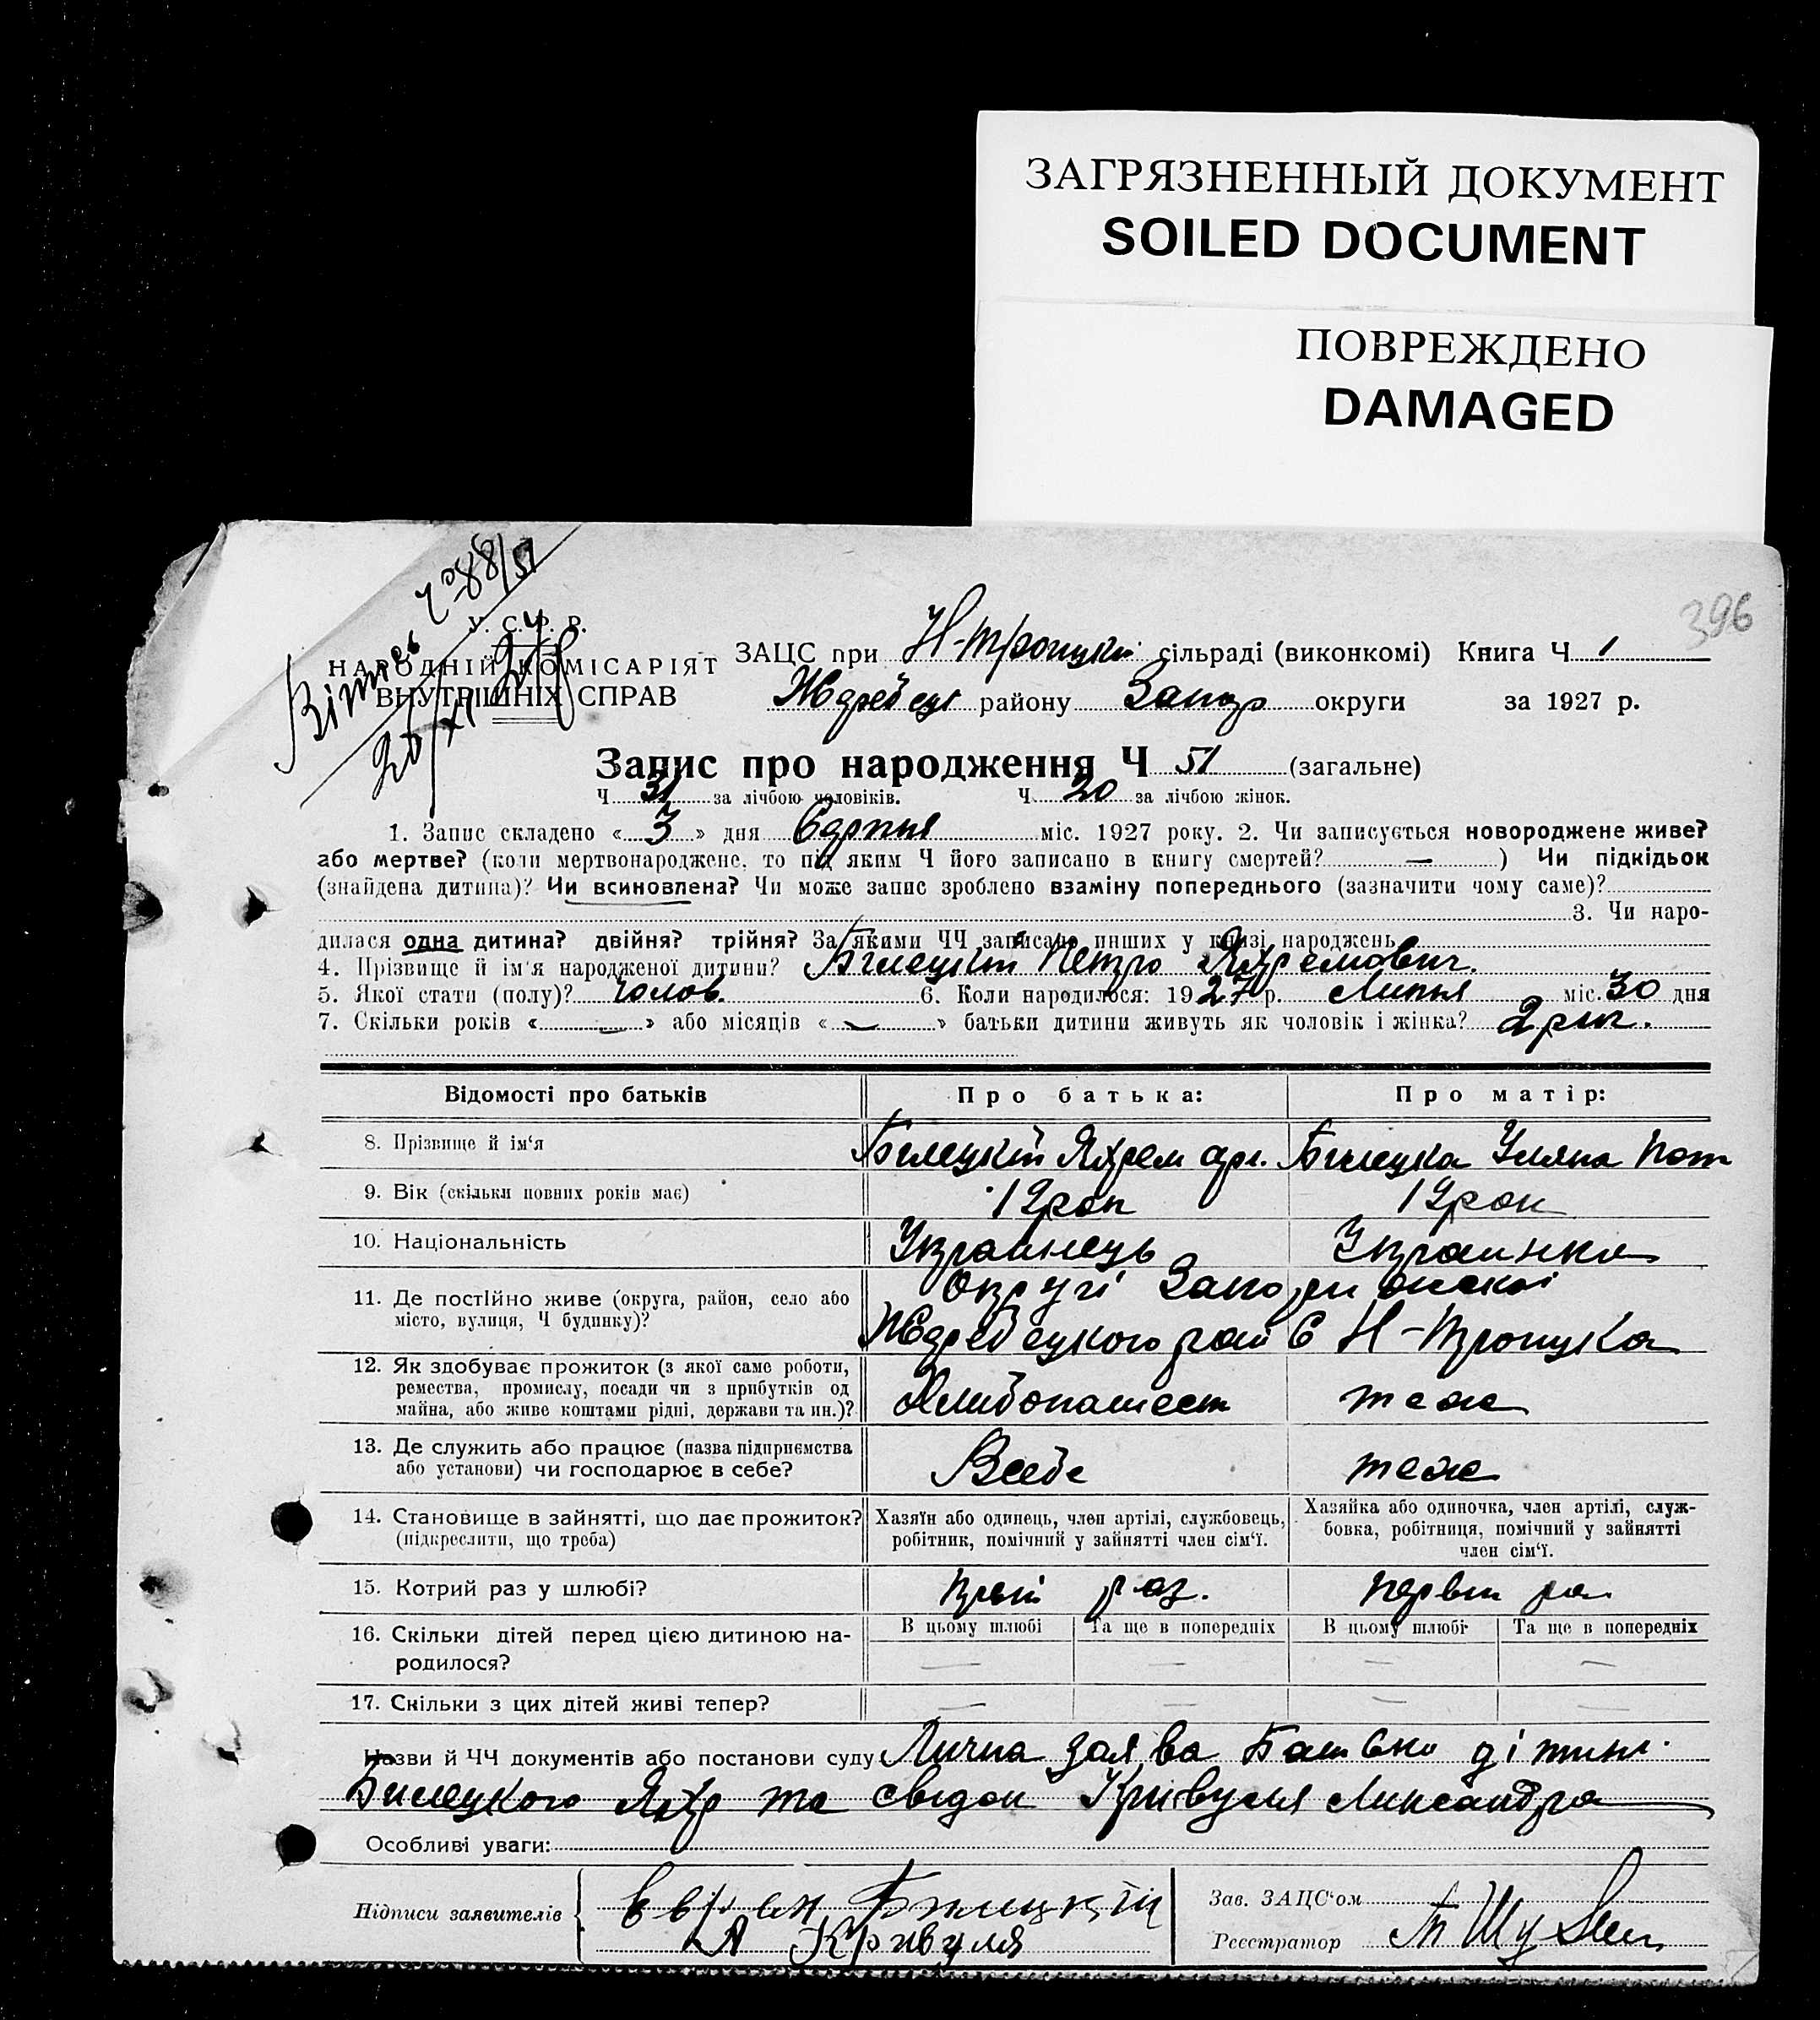 ЗАГРЯЗНЕННЫЙ ДОКУМЕНТ
SOILED DOCUMENT
ПОВРЕЖДЕНО
DAMAGED
396
У. С. Р. Р.
НАРОДНІЙ КОМІСАРІЯТ
ВНУТРІШНІХ СПРАВ
ЗАЦС при Н-Троицки сільраді (виконкомі) Книга Ч 1
району Запор округи за 1927 р.
Запис про народження Ч 51 (загальне)
Ч 31 за лічбою чоловіків. Ч 20 за лічбою жінок.
1. Запис складено «3» дня Серпня міс. 1927 року. 2. Чи записується новороджене живе?
або мертве? (коли мертвонароджене, то під яким Ч його записано в книгу смертей? — ) Чи підкідьок
(знайдена дитина)? Чи всиновлена? Чи може запис зроблено взаміну попереднього (зазначити чому саме)?
3. Чи наро-
дилася одна дитина? двійня? трійня? За якими ЧЧ записано инших у книзі народжень
4. Прізвище й ім'я народженої дитини? Білецкій Петро Яхремович.
5. Якої стати (полу)? чолов. 6. Коли народилося: 1927 р. Липня міс. 30 дня
7. Скільки років « — » або місяців « — » батьки дитини живуть як чоловік і жінка? 2 рік.
Відомості про батьків
Про батька:
Про матір:
8. Прізвище й ім'я
Білецкій Яхрем
Білецка Уляна Пот
9. Вік (скільки повних років має)
19 рок
19 рок
10. Національність
Українець
Украинка
11. Де постійно живе (округа, район, село або
місто, вулиця, Ч будинку)?
Округі Запорижскоі
рай С Н-Троицка
12. Як здобуває прожиток (з якої саме роботи,
ремества, промислу, посади чи з прибутків од
майна, або живе коштами рідні, держави та ин.)?
Хлибопашест
теж
13. Де служить або працює (назва підприємства
або установи) чи господарює в себе?
Всебе
теж
14. Становище в зайнятті, що дає прожиток?
(підкреслити, що треба)
Хазяїн або одинець, член артілі, службовець,
робітник, помічний у зайнятті член сім'ї.
Хазяйка або одиночка, член артілі, служ-
бовка, робітниця, помічний у зайнятті
член сім'ї.
15. Котрий раз у шлюбі?
раз.
первий раз
16. Скільки дітей перед цією дитиною на-
родилося?
В цьому шлюбі
Та ще в попередніх
В цьому шлюбі
Та ще в попередніх
— — — —
17. Скільки з цих дітей живі тепер?
— — — —
Назви й ЧЧ документів або постанови суду Лична заява дітини
Билецкого Яхр та свідок Кривуля Александра
Особливі уваги:
Підписи заявителів
Билицкій
А Кривуля
Зав. ЗАЦС'ом
Реєстратор